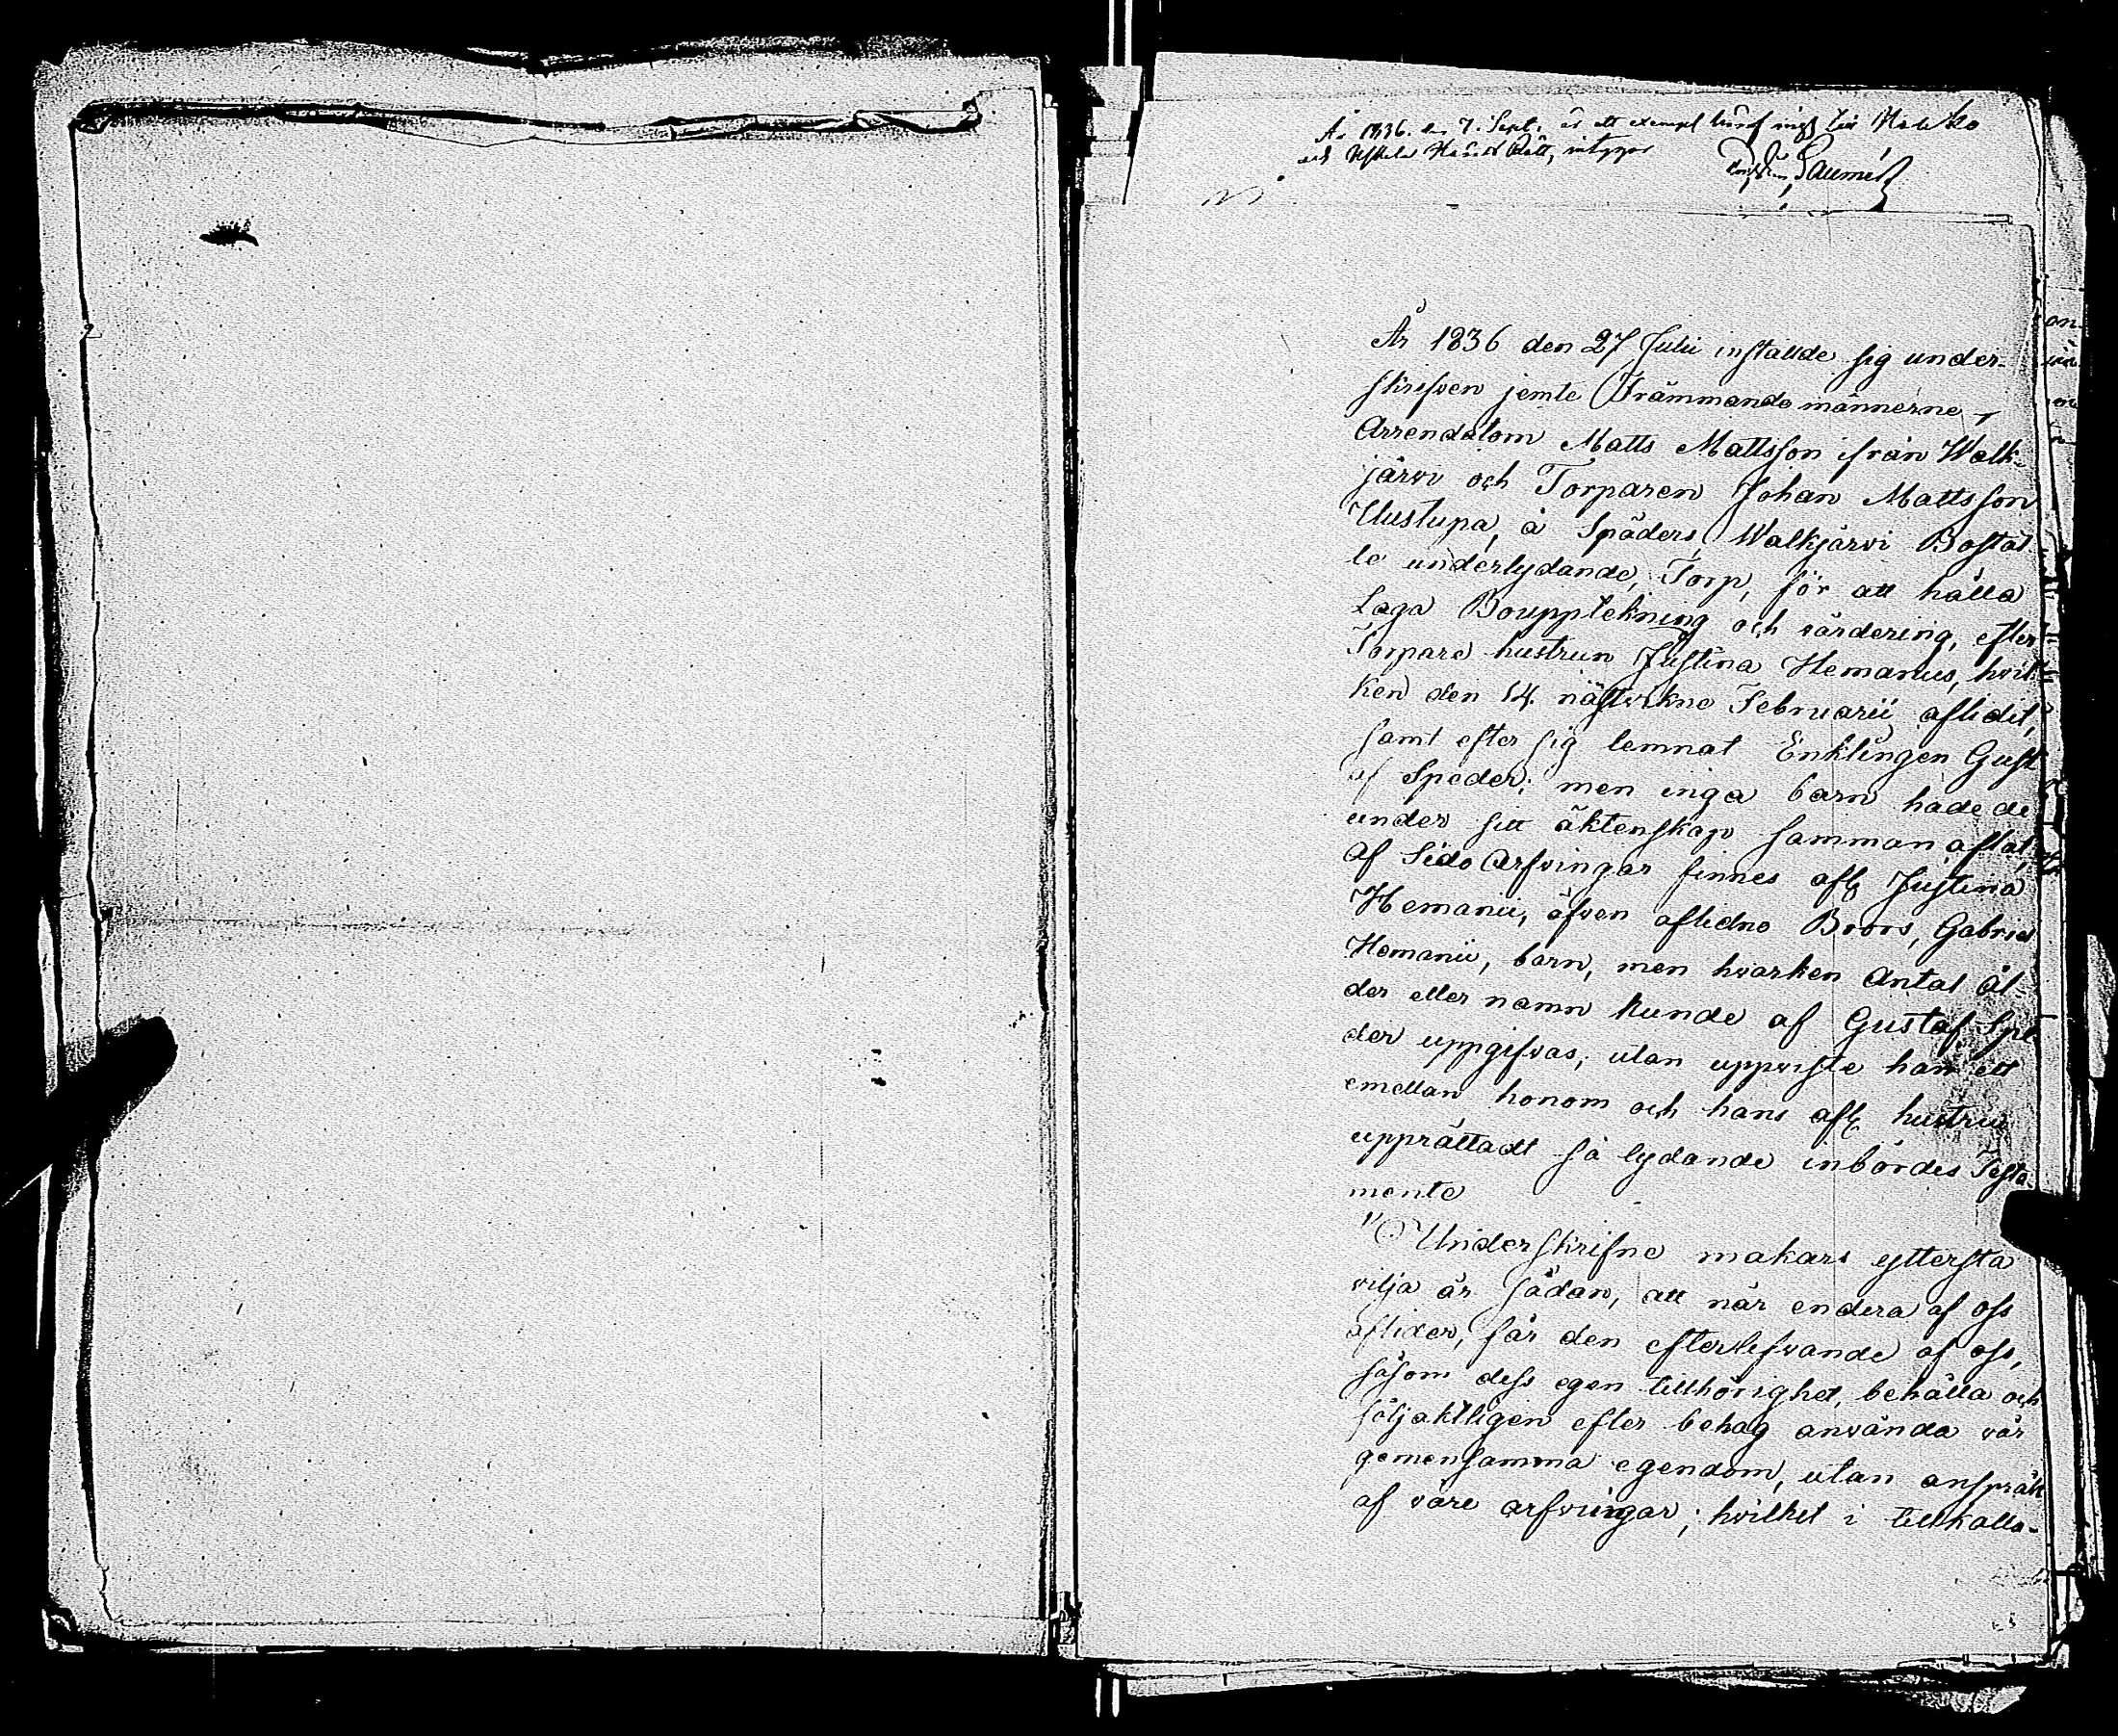 År 1836. den 7. Sept. är ett exempl
och Uskela Härads Rätt, intygar
År 1836 den 27 Julii inställde sig under-
skrifven jemte Främmande männerne,
Arrendatorn Matts Mattsson ifrån Walk-
järvi och Torparen Johan Mattsson
Uustupa, å Späders, Walkjärvi Bostäl-
le underlydande, Torp, för att hålla
Laga Bouppteckning och värdering, efter
Torpare hustrun Justina Hemanus, hvil-
ken den 14. nästvikne Februarii aflidit,
samt efter sig lemnat Enklingen Gust
af Speder; men inga barn hade de
under sitt äktenskap samman aflat,
af Sido Arfvingar finnes afl. Justina
Hemanii, äfven aflidne Brors, Gabriel
Hemanii, barn, men hvarken Antal ål-
der eller namn kunde af Gustaf Spe
der uppgifvas; utan uppviste han ett
emellan honom och hans afl. hustru
upprättadt så lydande inbördes Testa-
mente
"Underskrifne makars yttersta
vilja är sådan, att när endera af oss
aflider, får den efterlefvande af oss,
såsom dess egen tillhörighet, behålla och
följaktligen efter behag använda vår
gemensamma egendom, utan anspråk
af våre arfvingar; hvilket i tillkalla-